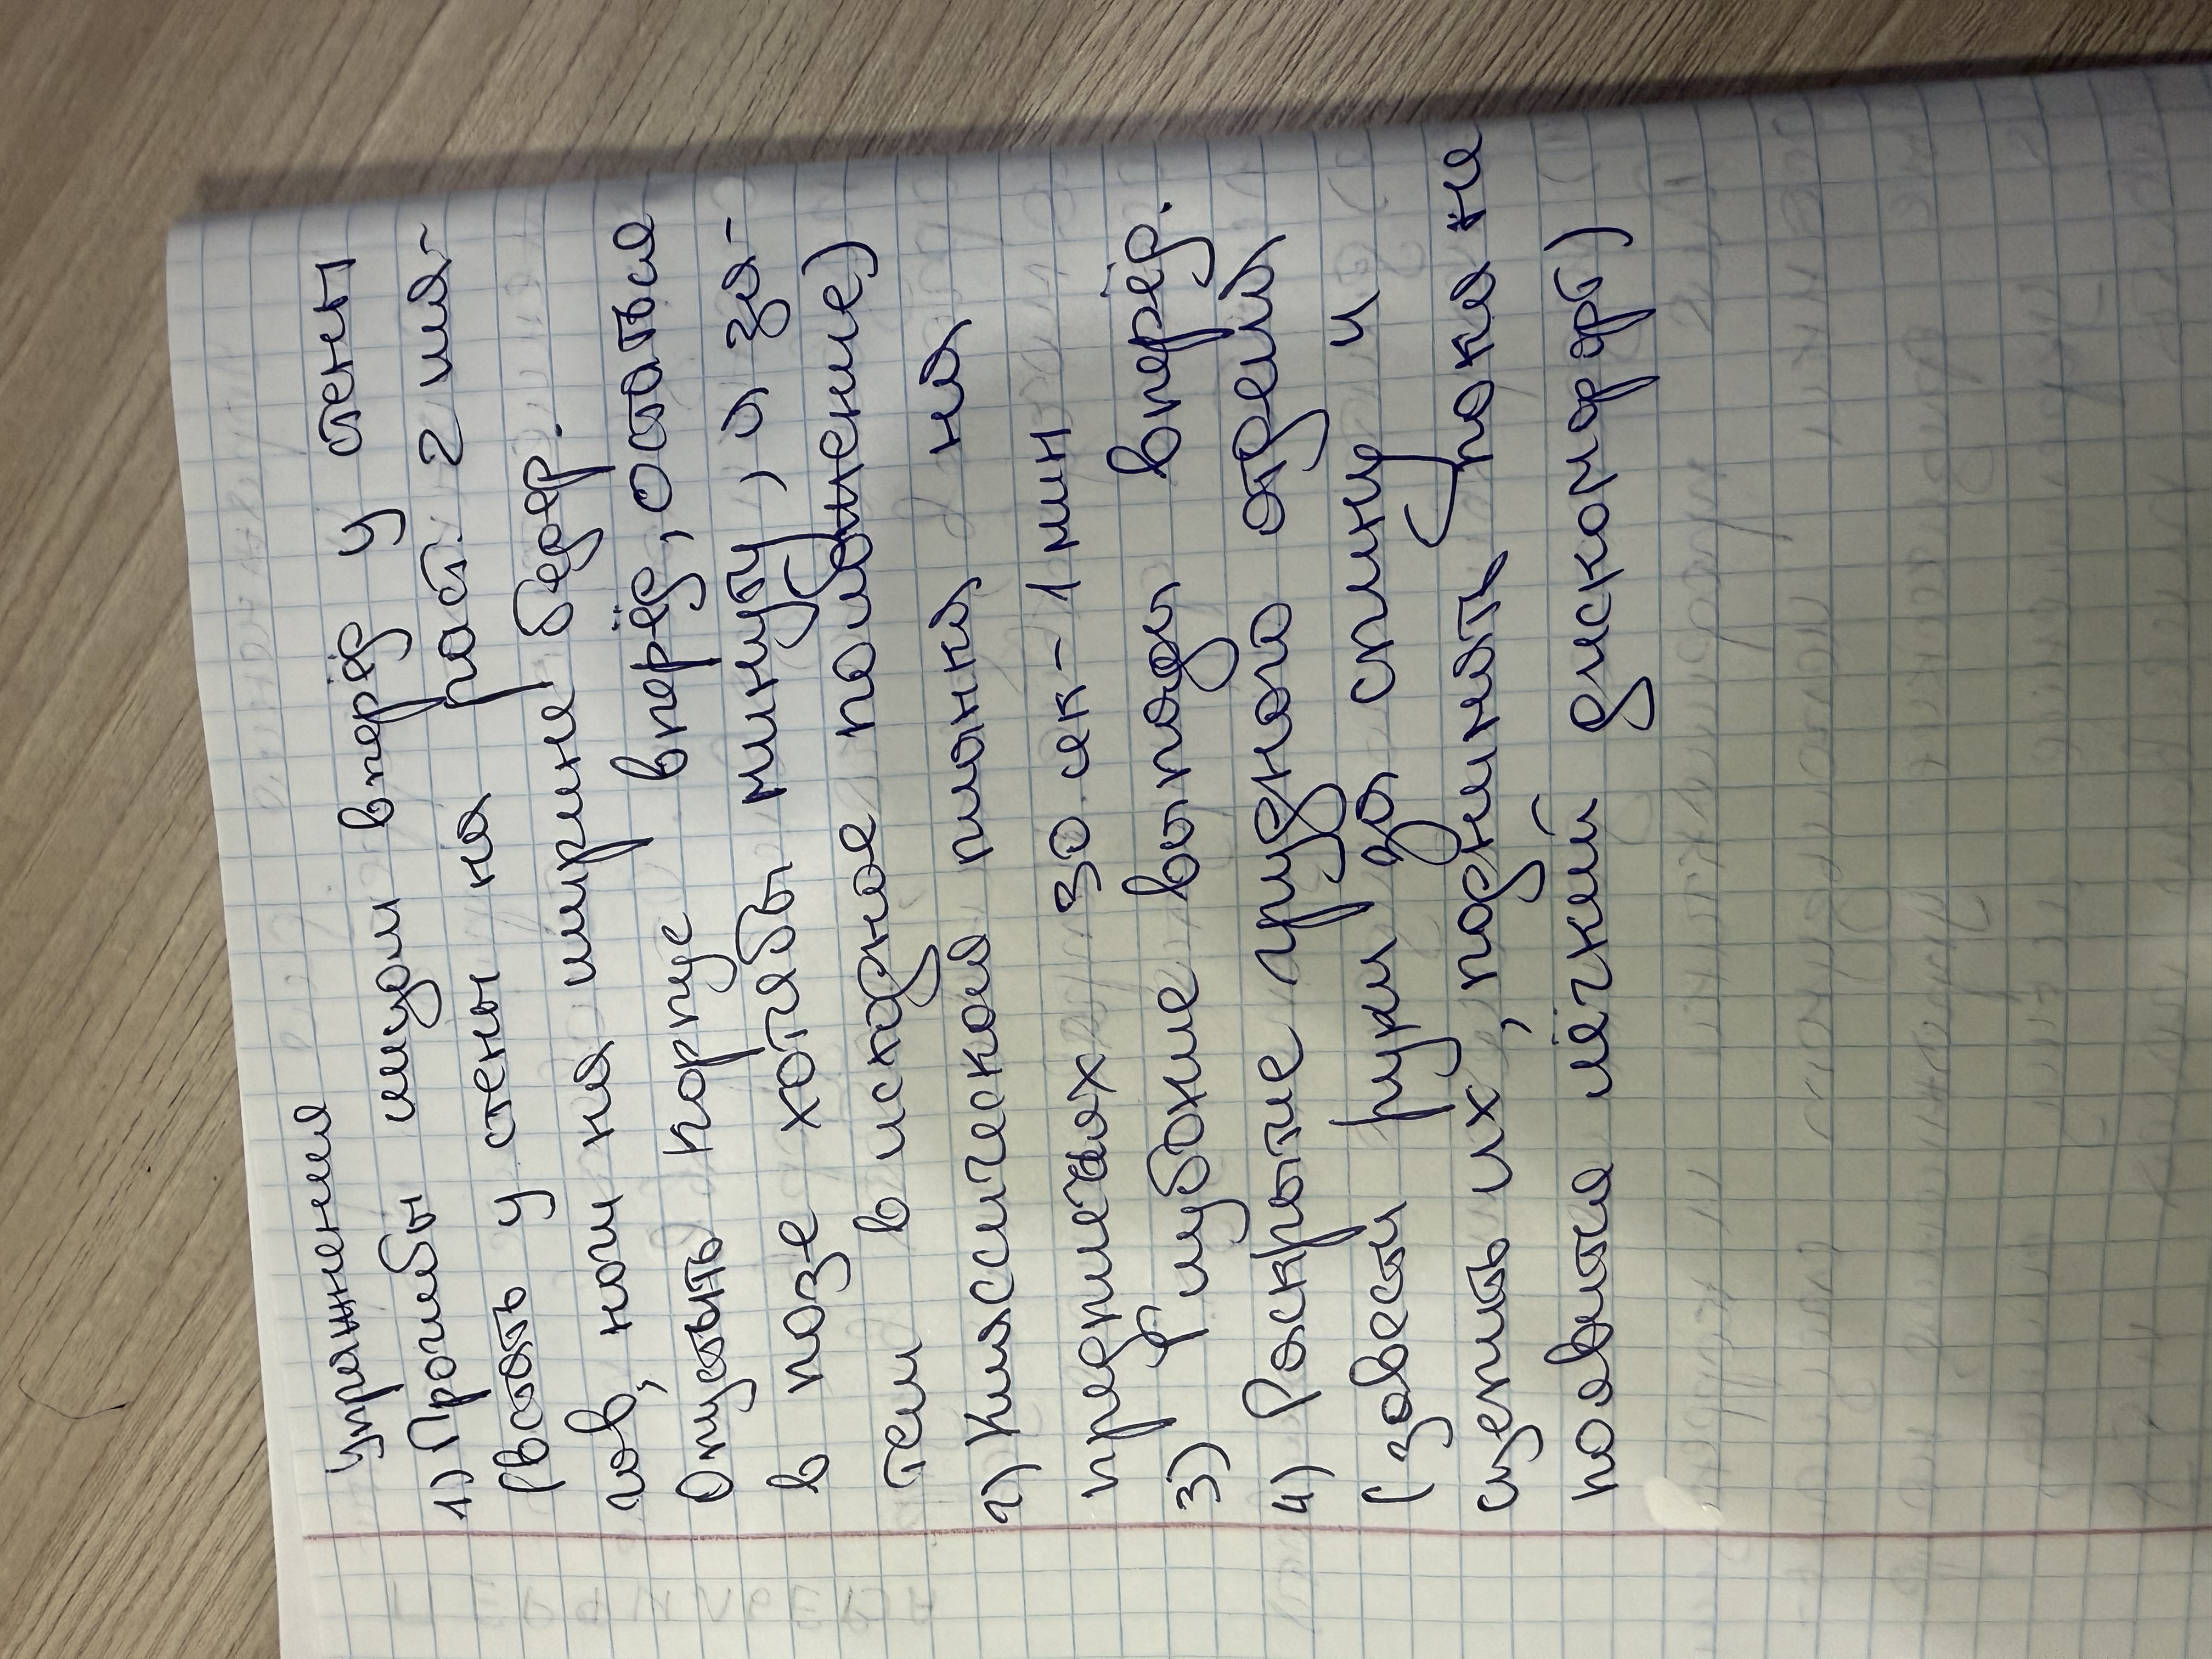 Упражнения
1) Прогибы лицом вперёд у стены
(встать у стены на раст. 2 ша-
гов, ноги на ширине бедер.
Опустить корпус вперёд, остаться
в позе хотябы минуту, а за-
тем в исходное положение)
2) Классическая планка на
предплечьях 30 сек - 1 мин
3) Глубокие выпады вперёд.
4) Раскрытие грудного отдела
(завести руки за спину и
сцепить их, поднимать пока не
появится лёгкий дискомфорт)